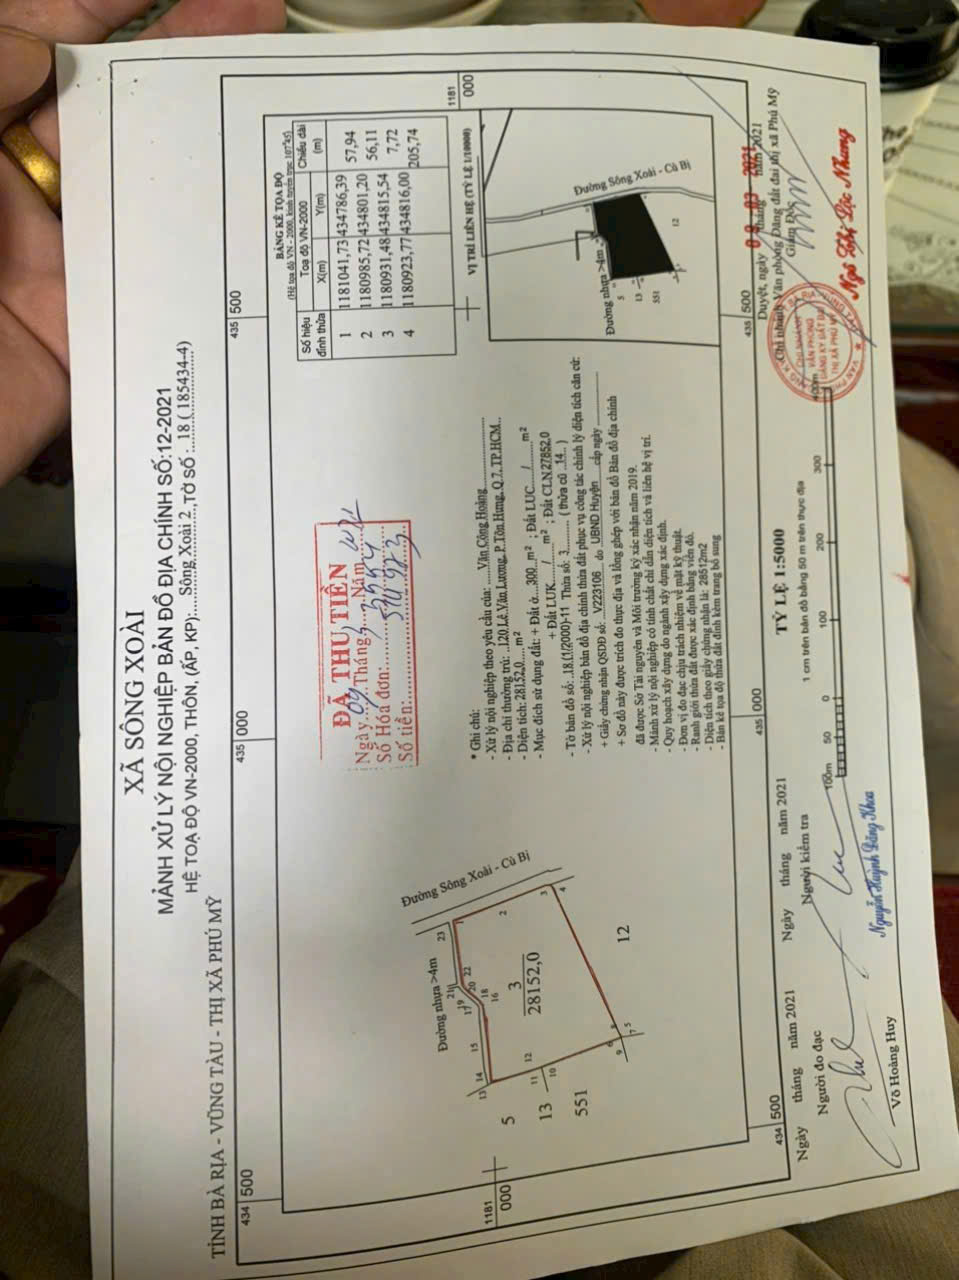 XÃ SÔNG XOÀI
MẢNH XỬ LÝ NỘI NGHIỆP BẢN ĐỒ ĐỊA CHÍNH SỐ:12-2021
HỆ TOẠ ĐỘ VN-2000, THÔN, (ẤP, KP):.....Sông Xoài 2..,TỜ SỐ :..18 ( 185434-4)
TỈNH BÀ RỊA - VŨNG TÀU - THỊ XÃ PHÚ MỸ
434 500
435 000
435 500
1181 000
BẢNG KÊ TỌA ĐỘ
(Hệ tọa độ VN - 2000, kinh tuyến trục 107°45')
Số hiệu đỉnh thửa
Toạ độ VN-2000
Chiều dài (m)
X(m) Y(m)
1 1181041,73 434786,39 57,94
2 1180985,72 434801,20 56,11
3 1180931,48 434815,54 7,72
4 1180923,77 434816,00 205,74
VỊ TRÍ LIÊN HỆ (TỶ LỆ 1/10000)
Đường Sông Xoài - Cù Bị
Đường nhựa >4m
5
13
551
12
ĐÃ THU TIỀN
Ngày 09 Tháng 3 Năm
Số Hóa đơn:
Số tiền:
Đường Sông Xoài - Cù Bị
Đường nhựa >4m
23
1
2
3
4
22
21
20
19
18
17
16
15
14
13
12
11
10
9
8
7
6
5
3
28152,0
5
13
551
12
1181 000
* Ghi chú:
- Xử lý nội nghiệp theo yêu cầu của: ......Văn Công Hoàng
- Địa chỉ thường trú: ..120 Lê Văn Lương, P.Tôn Hưng, Q.7, TP.HCM..
- Diện tích: 28152,0 m²
- Mục đích sử dụng đất: + Đất ở....300 m² ; Đất LUC..../.... m²
+ Đất LUK..../.... m² ; Đất CLN 27852,0
- Tờ bản đồ số: .18.(1/2000)-11 Thửa số: 3.......... ( thửa cũ ..14.. )
- Xử lý nội nghiệp bản đồ địa chính thửa đất phục vụ công tác chỉnh lý diện tích căn cứ:
+ Giấy chứng nhận QSDĐ số: V223106 do UBND Huyện cấp ngày
+ Sơ đồ này được trích đo thực địa và lồng ghép với bản đồ Bản đồ địa chính
đã được Sở Tài nguyên và Môi trường ký xác nhận năm 2019.
- Mảnh xử lý nội nghiệp có tính chất chỉ dẫn diện tích và liên hệ vị trí.
- Quy hoạch xây dựng do ngành xây dựng xác định.
- Đơn vị đo đạc chịu trách nhiệm về mặt kỹ thuật.
- Ranh giới thửa đất được xác định bằng viền đỏ.
- Diện tích theo giấy chứng nhận là: 28512m2
- Bản kê tọa độ thửa đất đính kèm trang bổ sung
434 500
435 000
435 500
TỶ LỆ 1:5000
1 cm trên bản đồ bằng 50 m trên thực địa
100m 50 0 100 200 300 400m
Ngày tháng năm 2021
Người đo đạc
Võ Hoàng Huy
Ngày tháng năm 2021
Người kiểm tra
Nguyễn Huỳnh Đăng Khoa
Duyệt, ngày 09 tháng 03 năm 2021
Chi nhánh Văn phòng Đăng đất đai thị xã Phú Mỹ
Giám Đốc
CHI NHÁNH
VĂN PHÒNG
ĐĂNG KÝ ĐẤT ĐAI
THỊ XÃ PHÚ MỸ
Ngô Thị Lộc Nhung